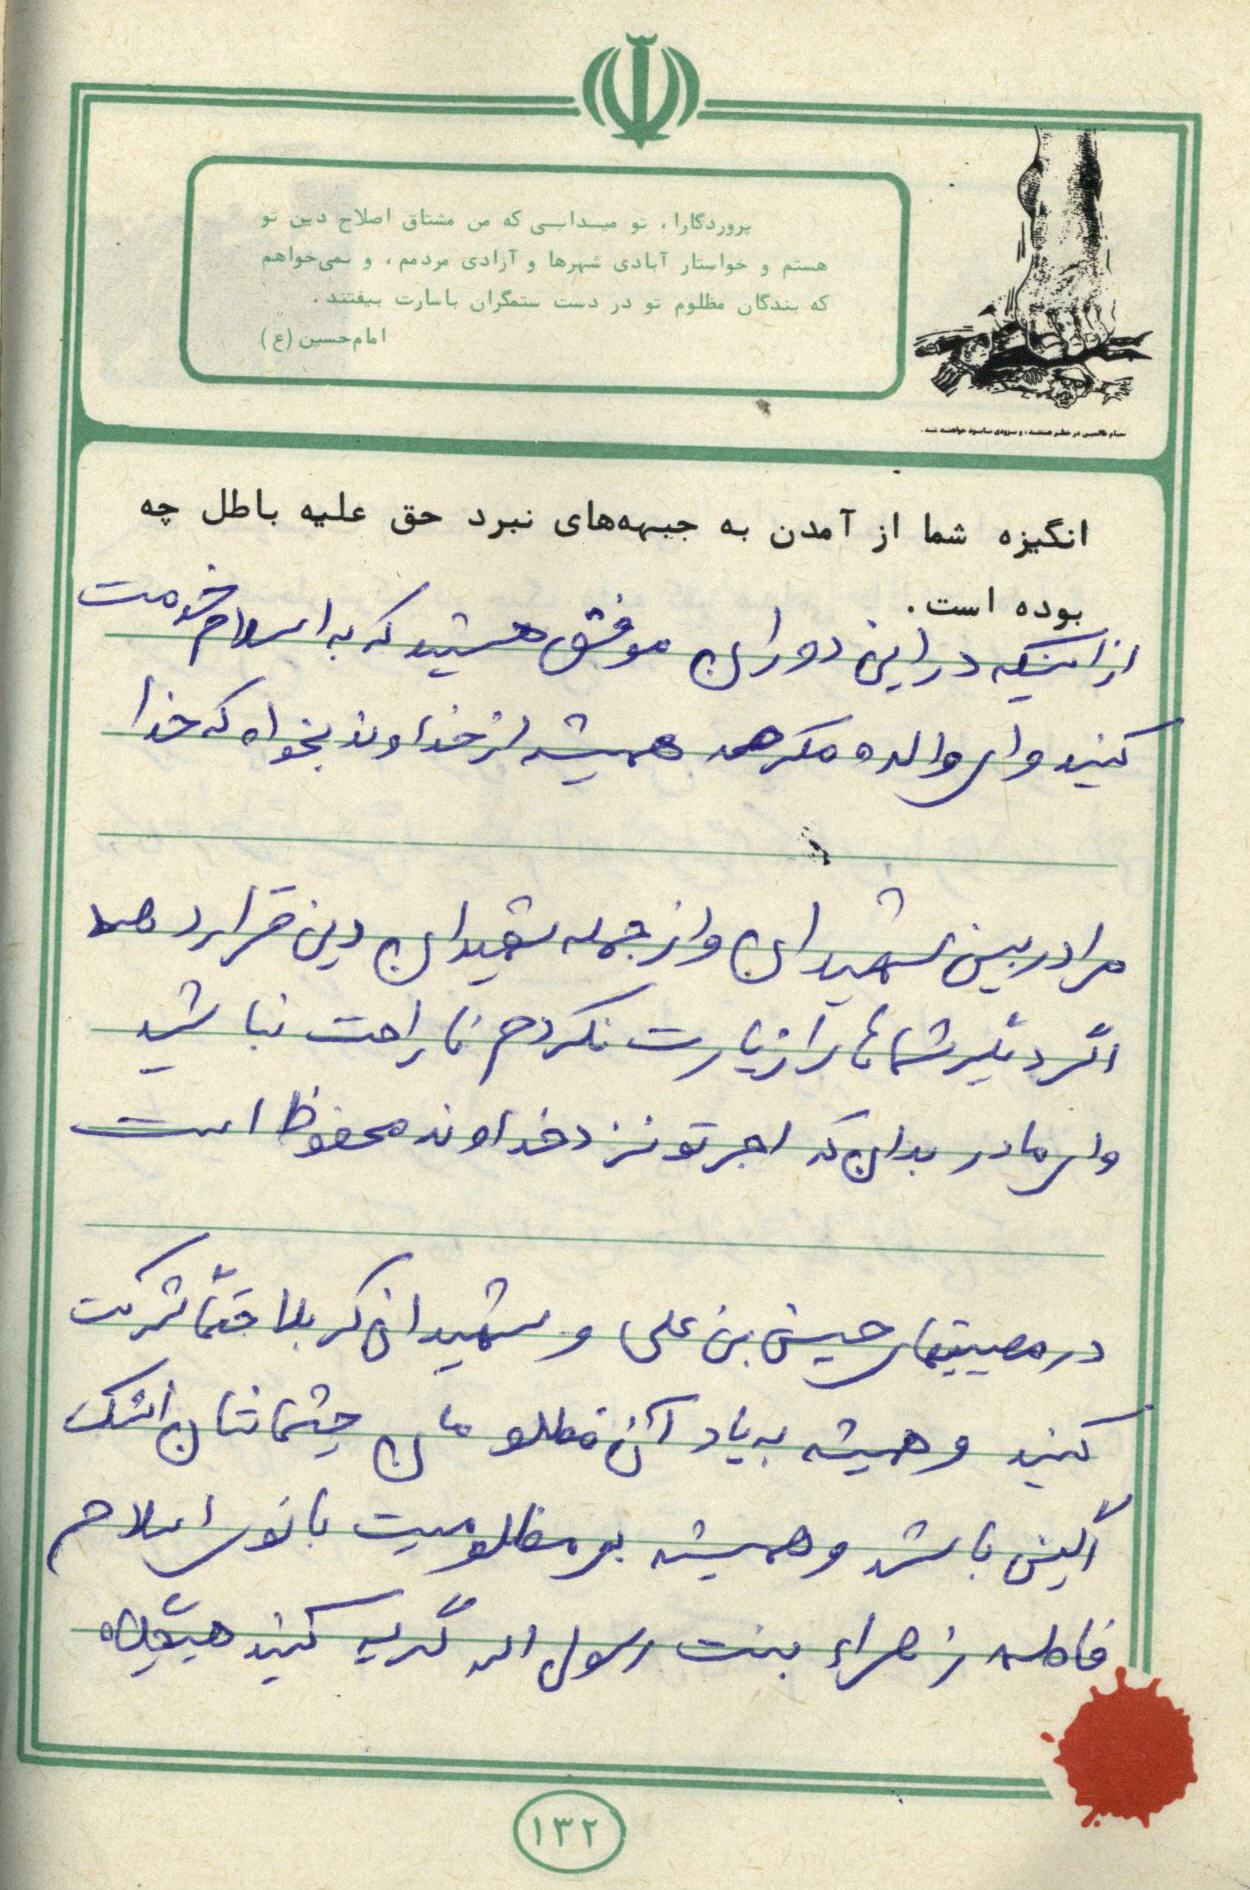 پروردگارا، تو میدانی که من مشتاق اصلاح دین تو
هستم و خواستار آبادی شهرها و آزادی مردمم، و نمی‌خواهم
که بندگان مظلوم تو در دست ستمگران باسارت بیفتند.
امام حسین (ع)
تمام ظالمین در خطر هستند، و بزودی نابود خواهند شد.
انگیزه شما از آمدن به جبهه‌های نبرد حق علیه باطل چه
بوده است.
از اینکه در این دوران موفق هستید که به اسلام خدمت
کنید و ای والده مکرمه همیشه از خداوند بخواه که خدا
مرا در بین شهیدان و از جمله شهیدان دین قرار دهد
اگر دیگر شماها را زیارت نکردم ناراحت نباشید
و ای مادر بدان که اجر تو نزد خداوند محفوظ است
در مصیبتهای حسین بن علی و شهیدان کربلا حتماً شرکت
کنید و همیشه به یاد آن مظلومان چشمانتان اشک
آگین باشد و همیشه بر مظلومیت بانوی اسلام
فاطمه زهراء بنت رسول الله گریه کنید هیچگاه
۱۳۲